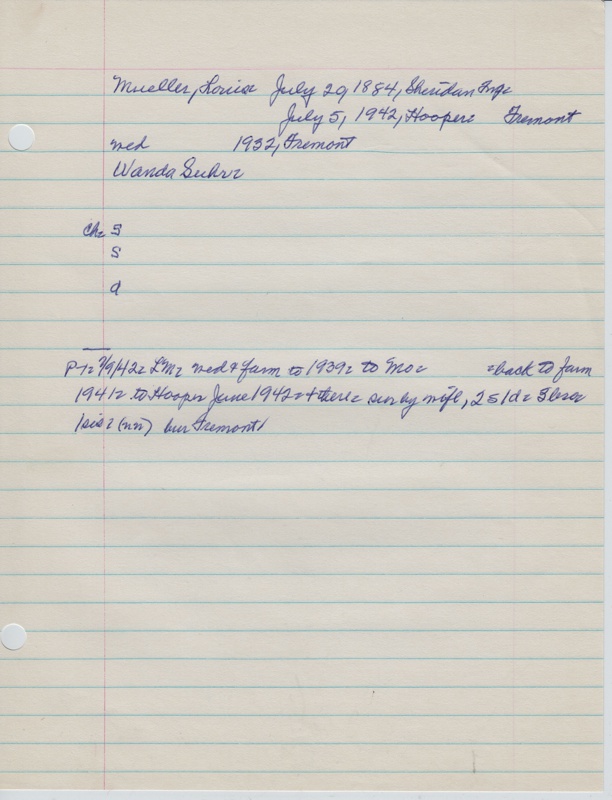 Mueller, Louis= July 29, 1884, Sheridan Twp=
July 5, 1942, Hooper= Fremont
med 1932, Fremont
Wanda Suhr=
ch= s
s
d
P1= 7/9/42= LM= med & farm to 1939= to Mo= =back to farm
1941= to Hooper June 1942= + there= sur by wife, 2s 1d=
1 sis= (nn) bur Fremont